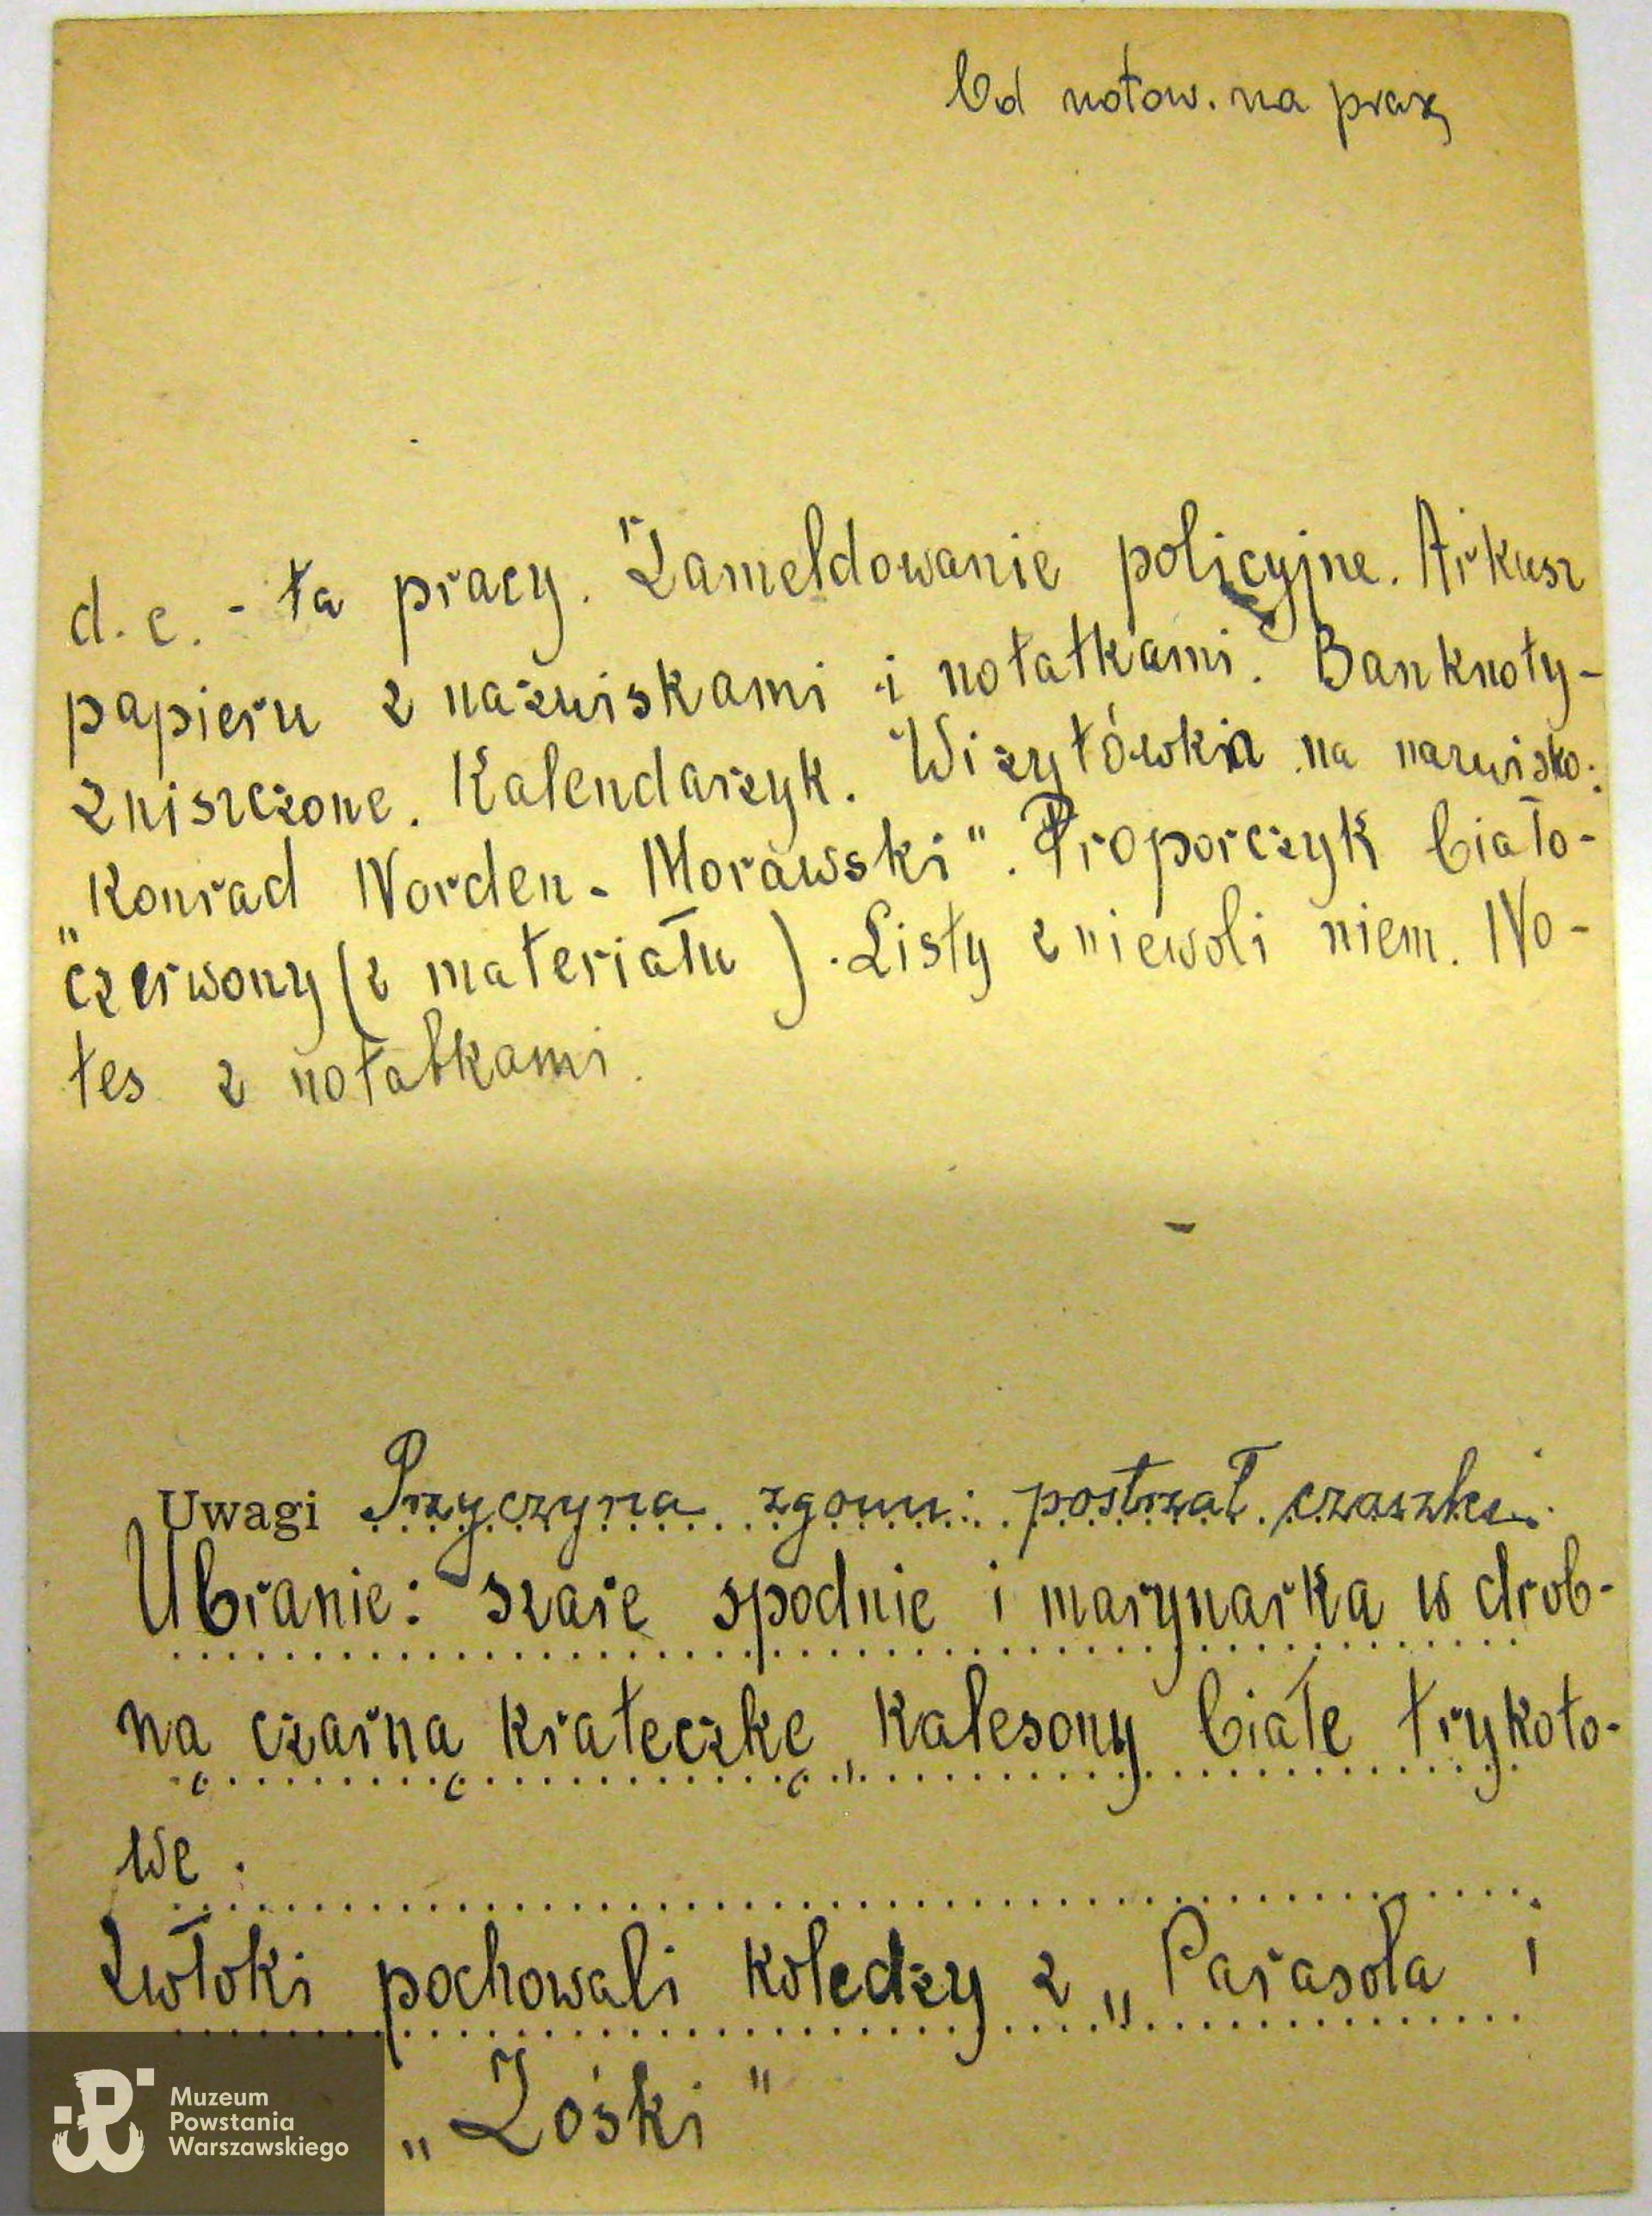 notow. na
d. c. - ta pracy. Zameldowanie policyjne. Arkusz
papieru z nazwiskami i notatkami. Banknoty -
zniszczone. Kalendarzyk. Wizytówka na nazwisko:
„Konrad Norden - Morawski". Proporczyk biało-
czerwony (z materiału). Listy z niewoli niem. No-
tes z notatkami.
Uwagi Przyczyna zgonu: postrzał czaszki.
Ubranie: szare spodnie i marynarka w drob-
ną czarną krateczkę, kalesony białe trykoto-
we.
Zwłoki pochowali koledzy z „Parasola i
„Zośki"
Muzeum
Powstania
Warszawskiego